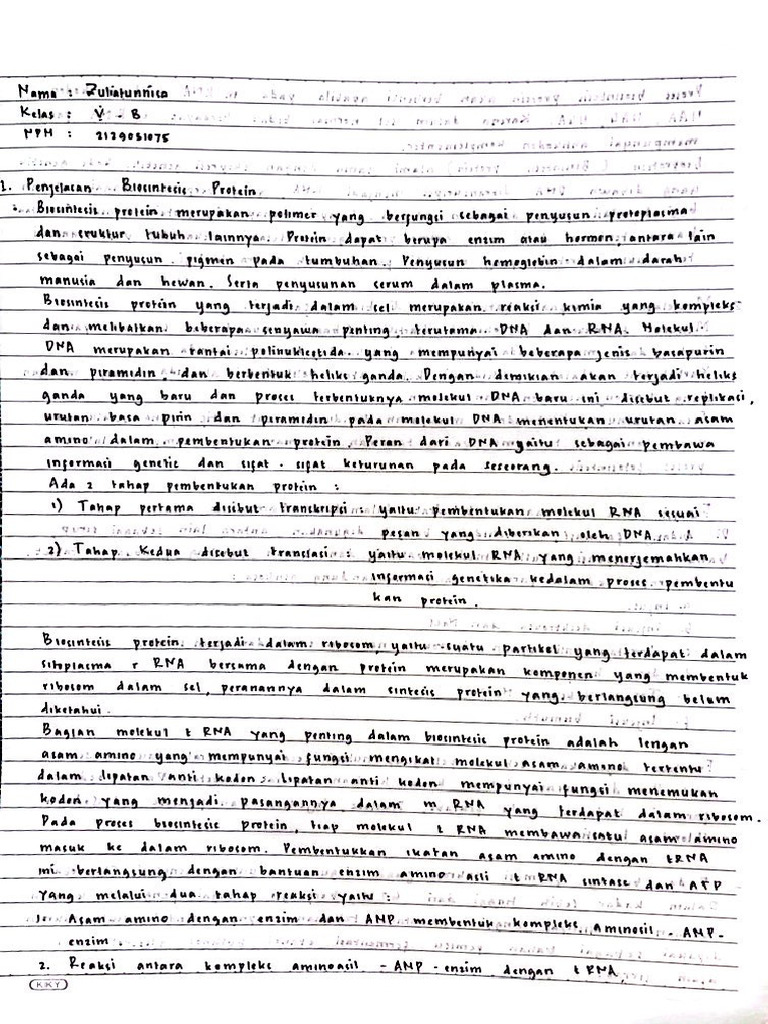 Nama : Zuliatunnisa
Kelas : V - B
NPM : 2129051075
1. Penjelasan Biosintesis Protein
Biosintesis protein merupakan polimer yang berfungsi sebagai penyusun protoplasma
dan struktur tubuh lainnya. Protein dapat berupa enzim atau hormon antara lain
sebagai penyusun pigmen pada tumbuhan. Penyusun hemoglobin dalam darah
manusia dan hewan. Serta penyusunan serum dalam plasma.
Biosintesis protein yang terjadi dalam sel merupakan reaksi kimia yang kompleks
dan melibatkan beberapa senyawa penting, terutama DNA dan RNA. Molekul
DNA merupakan rantai polinukleotida yang mempunyai beberapa jenis basa purin
dan piramidin, dan berbentuk heliks ganda. Dengan demikian akan terjadi heliks
ganda yang baru dan proses terbentuknya molekul DNA baru ini disebut replikasi,
urutan basa pirin dan piramidin pada molekul DNA menentukan urutan asam
amino dalam pembentukan protein. Peran dari DNA yaitu sebagai pembawa
informasi genetic dan sifat - sifat keturunan pada seseorang.
Ada 2 tahap pembentukan protein :
1) Tahap pertama disebut transkripsi : yaitu pembentukan molekul RNA sesuai
pesan yang diberikan oleh DNA.
2) Tahap kedua disebut translasi : yaitu molekul RNA yang menerjemahkan
informasi genetika kedalam proses pembentu
kan protein.
Biosintesis protein terjadi dalam ribosom yaitu suatu partikel yang terdapat dalam
sitoplasma r RNA bersama dengan protein merupakan komponen yang membentuk
ribosom dalam sel, peranannya dalam sintesis protein yang berlangsung belum
diketahui.
Bagian molekul t RNA yang penting dalam biosintesis protein adalah lengan
asam amino yang mempunyai fungsi mengikat molekul asam amino tertentu
dalam lipatan anti kodon. Lipatan anti kodon mempunyai fungsi menemukan
kodon yang menjadi pasangannya dalam m RNA yang terdapat dalam ribosom.
Pada proses biosintesis protein, tiap molekul t RNA membawa satu asam amino
masuk ke dalam ribosom. Pembentukkan ikatan asam amino dengan tRNA
ini berlangsung dengan bantuan enzim amino asli t RNA sintase dan ATP
yang melalui dua tahap reaksi yaitu :
1. Asam amino dengan enzim dan AMP membentuk kompleks aminosil - AMP -
enzim
2. Reaksi antara kompleks aminoasil - AMP - enzim dengan t RNA
KKY